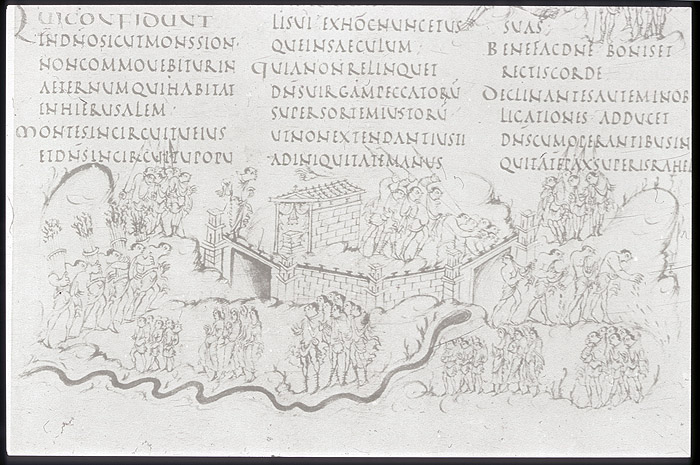 QUICONFIDUNT
INDNOSICUTMONSSION·
NONCOMMOUEBITURIN
AETERNUMQUIHABITAT
INHIERUSALEM·
MONTESINCIRCUITUEIUS
ETDNSINCIRCUITUPOPU
LISUI EXHOCNUNCETUS
QUEINSAECULUM·
QUIANONRELINQUET
DNSUIRGAMPECCATORŪ
SUPERSORTEMIUSTORŪ
UTNONEXTENDANTIUSTI
ADINIQUITATEMANUS
SUAS·
BENEFACDNE BONISET
RECTISCORDE
DECLINANTESAUTEMINOB
LIGATIONES ADDUCET
DNSCUMOPERANTIBUSIN
QUITATEPAXSUPERISRAHEL